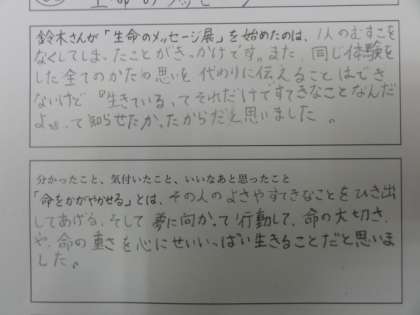 生命のメッセージ
鈴木さんが「生命のメッセージ展」を始めたのは、1人のむすこを
なくしてしまったことがきっかけです。また、同じ体験を
した全てのかたの思いを代わりに伝えることはでき
ないけど『生きている』ってそれだけですてきなことなんだ
よ』って知らせたかったからだと思いました。
分かったこと、気付いたこと、いいなあと思ったこと
「命をかがやかせる」とは、その人のよさやすてきなことをひき出
してあげる、そして夢に向かって行動して、命の大切さ
や、命の重さを心にせいいっぱい生きることだと思いま
した。